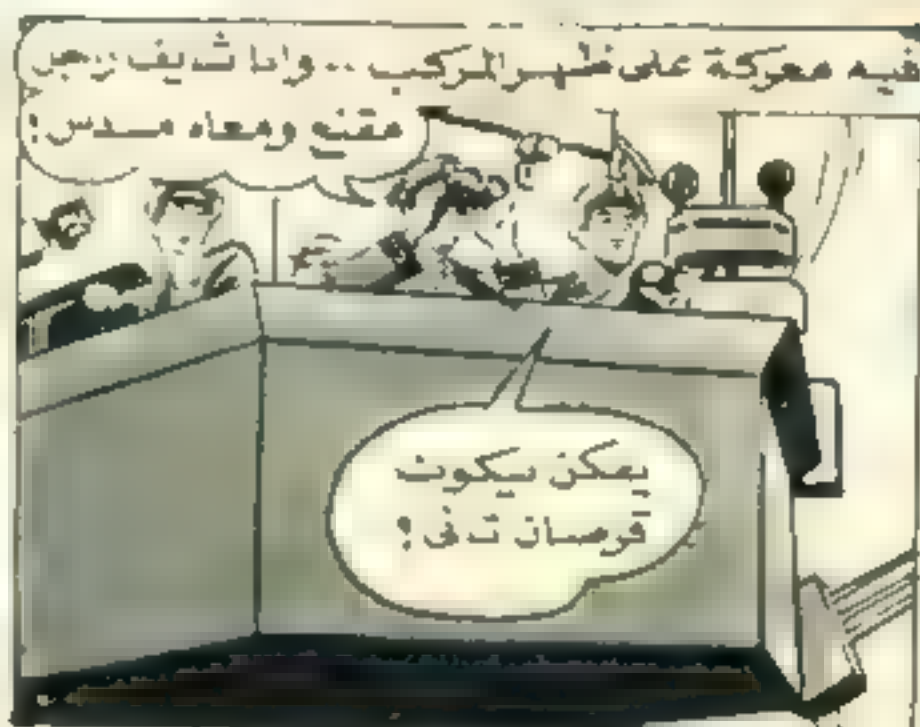 فيه معركة على ظهر المركب .. وأنا شايف رجل
مقنع ومعاه مسدس!
يمكن يكون
قرصان تدفى!